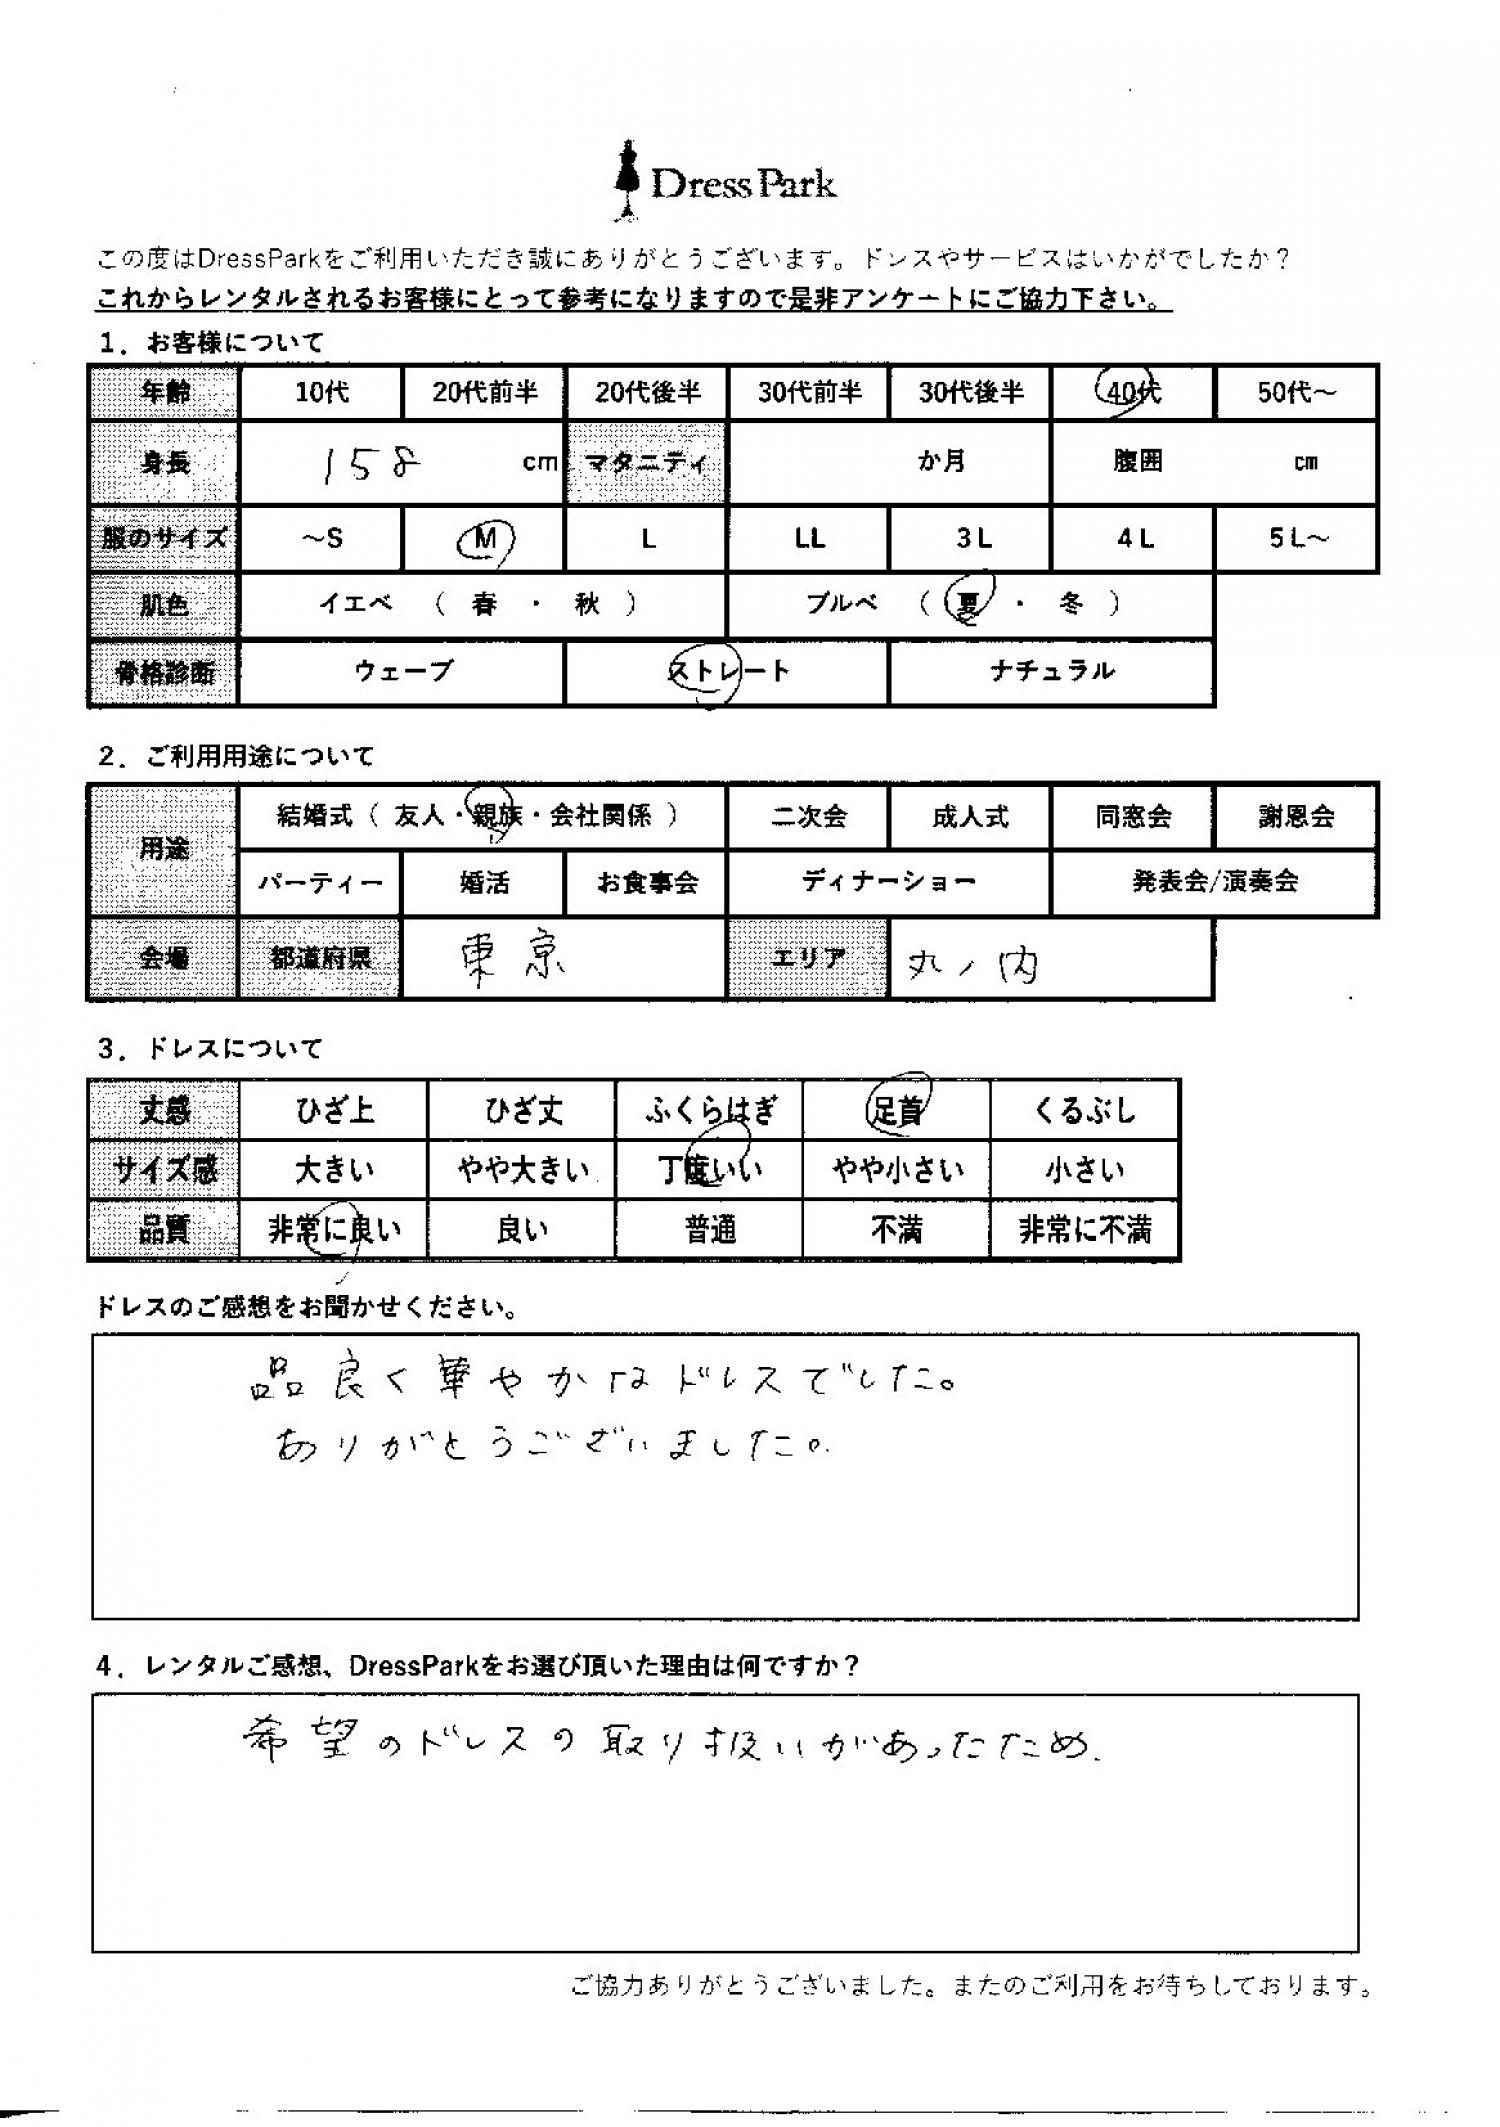 Dress Park
この度はDressParkをご利用いただき誠にありがとうございます。ドレスやサービスはいかがでしたか？
これからレンタルされるお客様にとって参考になりますので是非アンケートにご協力下さい。
1．お客様について
年齢 10代 20代前半 20代後半 30代前半 30代後半 40代 50代～
身長 158 cm マタニティ か月 腹囲 cm
服のサイズ ～S M L LL 3L 4L 5L～
肌色 イエベ （ 春 ・ 秋 ） ブルベ （ 夏 ・ 冬 ）
骨格診断 ウェーブ ストレート ナチュラル
2．ご利用用途について
用途 結婚式（ 友人・親族・会社関係 ） 二次会 成人式 同窓会 謝恩会
パーティー 婚活 お食事会 ディナーショー 発表会/演奏会
会場 都道府県 東京 エリア 丸ノ内
3．ドレスについて
丈感 ひざ上 ひざ丈 ふくらはぎ 足首 くるぶし
サイズ感 大きい やや大きい 丁度いい やや小さい 小さい
品質 非常に良い 良い 普通 不満 非常に不満
ドレスのご感想をお聞かせください。
品良く華やかなドレスでした。
ありがとうございました。
4．レンタルご感想、DressParkをお選び頂いた理由は何ですか？
希望のドレスの取り扱いがあったため.
ご協力ありがとうございました。またのご利用をお待ちしております。